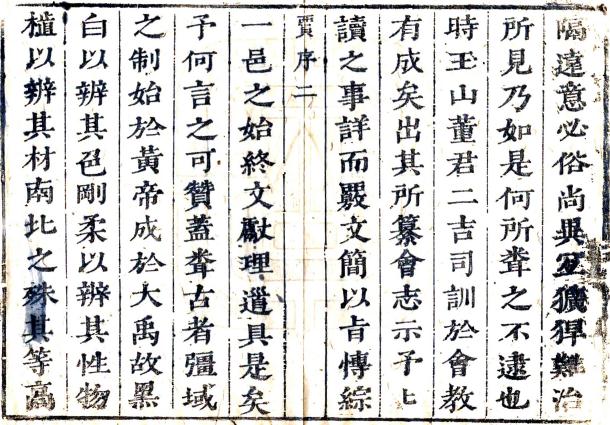 隔遠意必俗尚異宜獷猂難治
所見乃如是何所聞之不逮也
時玉山董君二吉司訓於會教
有成矣出其所纂會志示予匕
讀之事詳而覈文簡以旨愽綜
賈序二
一邑之始終文獻理道具是矣
予何言之可贊蓋聞古者彊域
之制始於黃帝成於大禹故黑
白以辨其色剛柔以辨其性物
植以辨其材南北之殊其等高